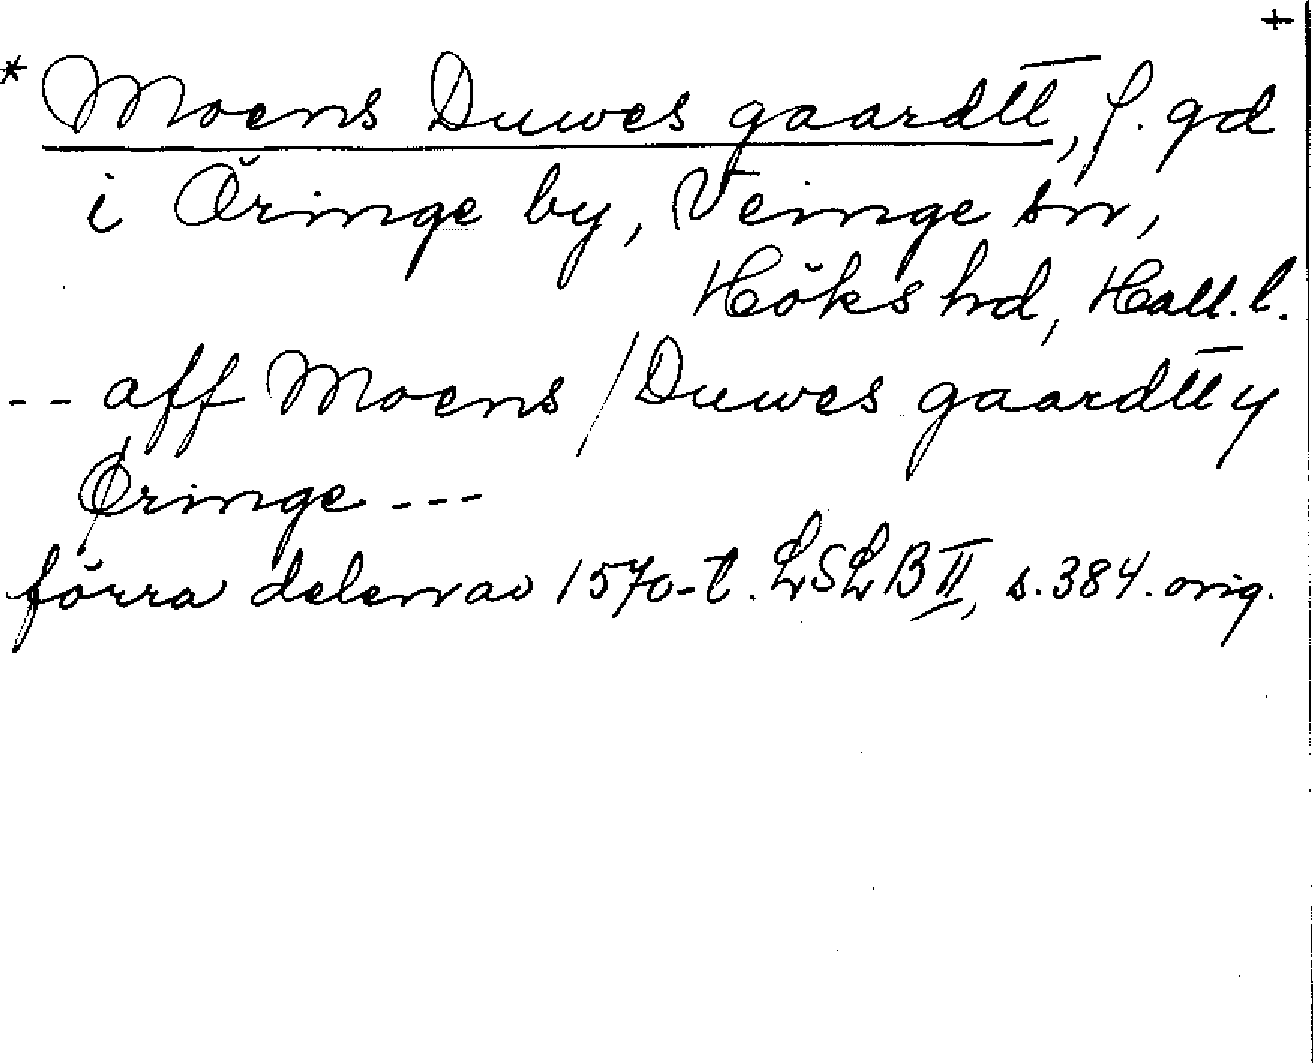 +
* Moens Duwes gaardtt, f. gd
i Öringe by, Veinge sn,
Höks hrd, Hall. l.
-- aff Moens / Duwes gaardtt y
Øringe ---
förra delen av 1570-t. LSLB II, s. 384. orig.